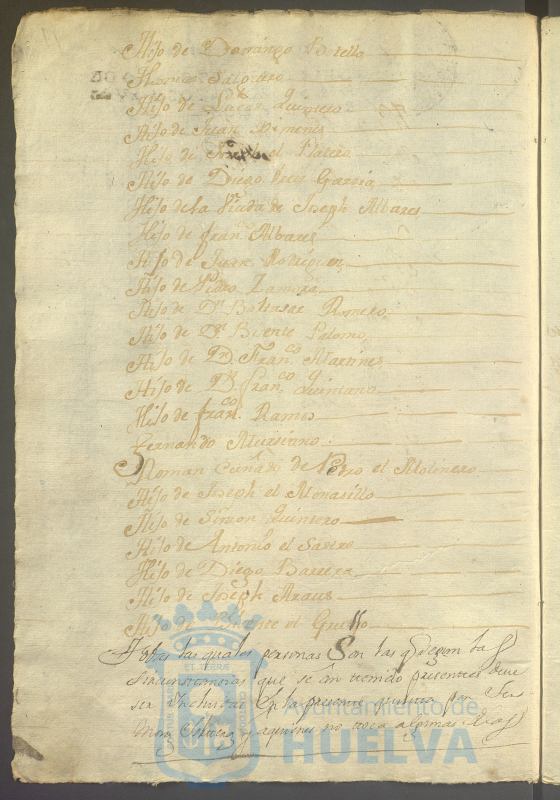 Hijo de Domingo Botello
Thomas Salguero
Hijo de Lucas Quintero
Hijo de Juan Ximenes
Hijo de el Platero
Hijo de Diego Garcia
Hijo de la Viuda de Joseph Albares
Hijo de franco Albares
Hijo de Juan Rodriguez
Hijo de Pedro Zamora
Hijo de Dn Baltasar Romero
Hijo de Dn Bisente Palomo
Hijo de Dn Franco Martines
Hijo de Dn Franco Quintano
Hijo de franco Ramos
Fernando
Roman Cuñado de Pedro el Molinero
Hijo de Joseph el Monasillo
Hijo de Simon Quintero
Hijo de Antonio el Sastre
Hijo de Diego Barrera
Hijo de Joseph Araus
Hijo de Vicente el Grullo
Todas las quales personas Son las q segun las
Sircunstancias que se an tenido presentes deve
ser Yncluidas En la presente quinta por Ser
Mosos Solteros y aquienes no toca algunas de las
ET TERRÆ
Ayuntamiento de
HUELVA